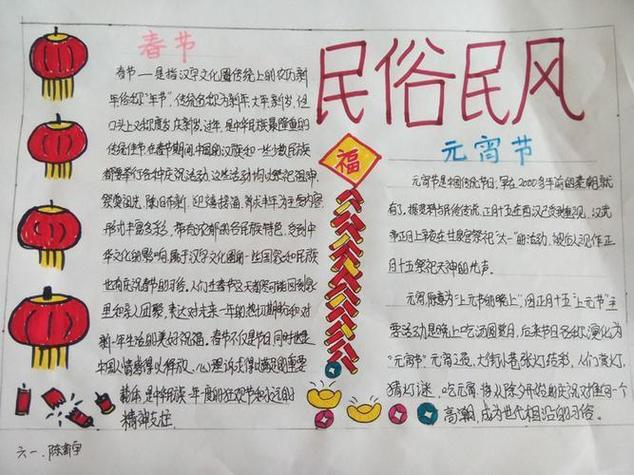 民俗民风
春节
春节——是指汉字文化圈传统上的农历新
年俗称"年节",传统名称为新年、大年、新岁,但
口头上又称度岁、庆新岁、过年,是中华民族最隆重的
传统佳节。春节期间,中国的汉族和一些少数民族
都要举行各种庆祝活动,这些活动均以祭祀祖神、
祭奠祖先、除旧布新、迎禧接福、祈求丰年为主要内容
形式丰富多彩,带有浓郁的各民族特色。受到中
华文化的影响,属于汉字文化圈的一些国家和民族
也有庆祝春节的习俗。人们在春节这天都尽可能回到家
里和亲人团聚,表达对未来一年的热切期盼和对
新一年生活的美好祝福。春节不仅是节日,同时也是
中国人情感得以释放、心理诉求得以满足的重要
载体,是中华民族一年一度的狂欢节和永远的
精神支柱
福
元宵节
元宵节是中国传统节日,早在2000多年前的秦朝就
有了。据资料与民俗传说,正月十五在西汉已受到重视,汉武
帝正月上辛夜在甘泉宫祭祀"太一"的活动,被后人视作正
月十五祭祀天神的先声。
元宵原意为"上元节的晚上",因正月十五"上元节"主
要活动是晚上吃汤圆赏月,后来节日名称演化为
"元宵节"。元宵之夜,大街小巷张灯结彩,人们赏灯,
猜灯谜,吃元宵,将从除夕开始的庆祝
高潮,成为世代相沿的习俗。
六一、陈